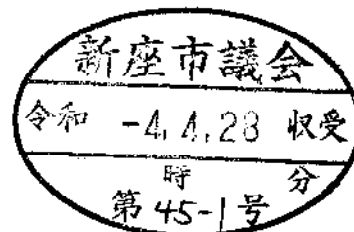 新座市議会
令和 -4.4.28 収受
時 分
第45-1号